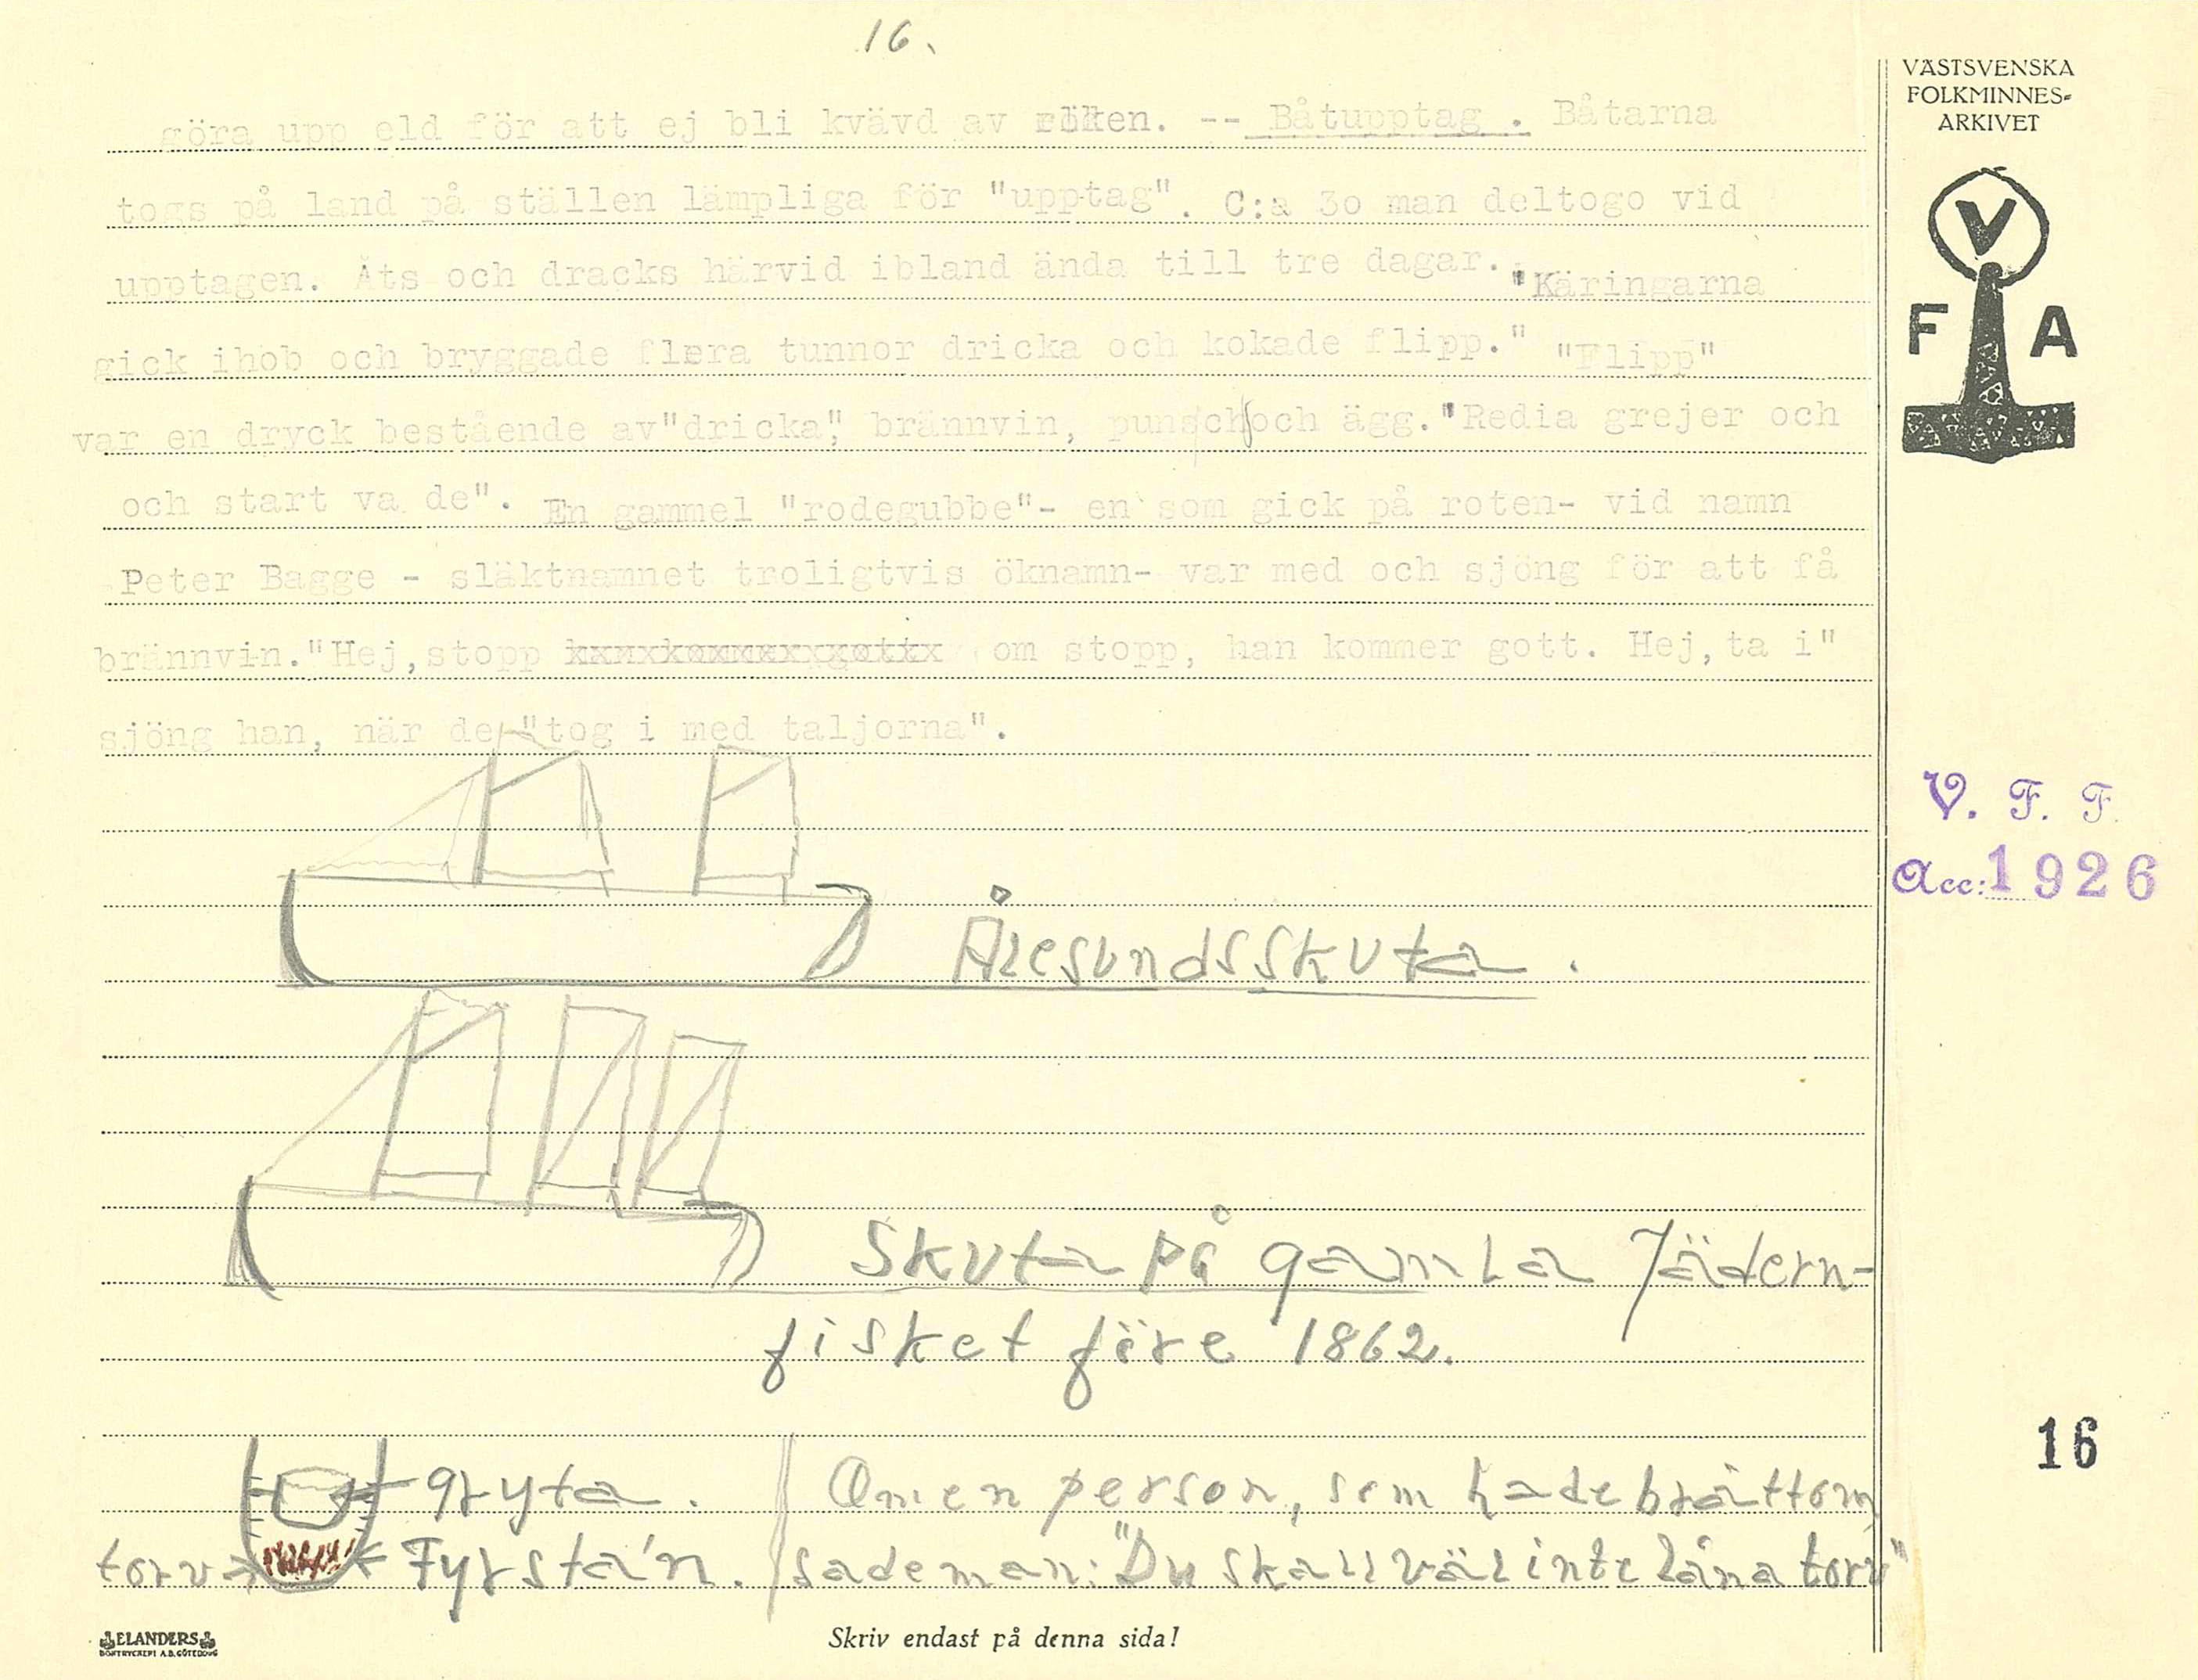 16.
göra upp eld för att ej bli kvävd av röken. -- Båtupptag. Båtarna
togs på land på ställen lämpliga för "upptag". C:a 3o man deltogo vid
upptagen. Åts och dracks härvid ibland ända till tre dagar. "Käringarna
gick ihob och bryggade flera tunnor dricka och kokade flipp." "Flipp"
var en dryck bestående av "dricka", brännvin, punsch och ägg. "Redia grejer och
och start va de". En gammel "rodegubbe"- en som gick på roten- vid namn
Peter Bagge - släktnamnet troligtvis öknamn- var med och sjöng för att få
brännvin. "Hej, stopp om stopp, han kommer gott. Hej, ta i"
sjöng han, när de "tog i med taljorna".
Ålesundsskuta.
Skuta på gamla Jädern-
fisket före 1862.
gryta.
torv
Fyrsta'n.
Om en person, som hade bråttom
sade man: "Du skall väl inte låna torv"
VÄSTSVENSKA
FOLKMINNES-
ARKIVET
V
F A
V. F. F.
Acc: 1926
16
ELANDERS
BOKTRYCKERI A.B. GÖTEBORG
Skriv endast på denna sida!